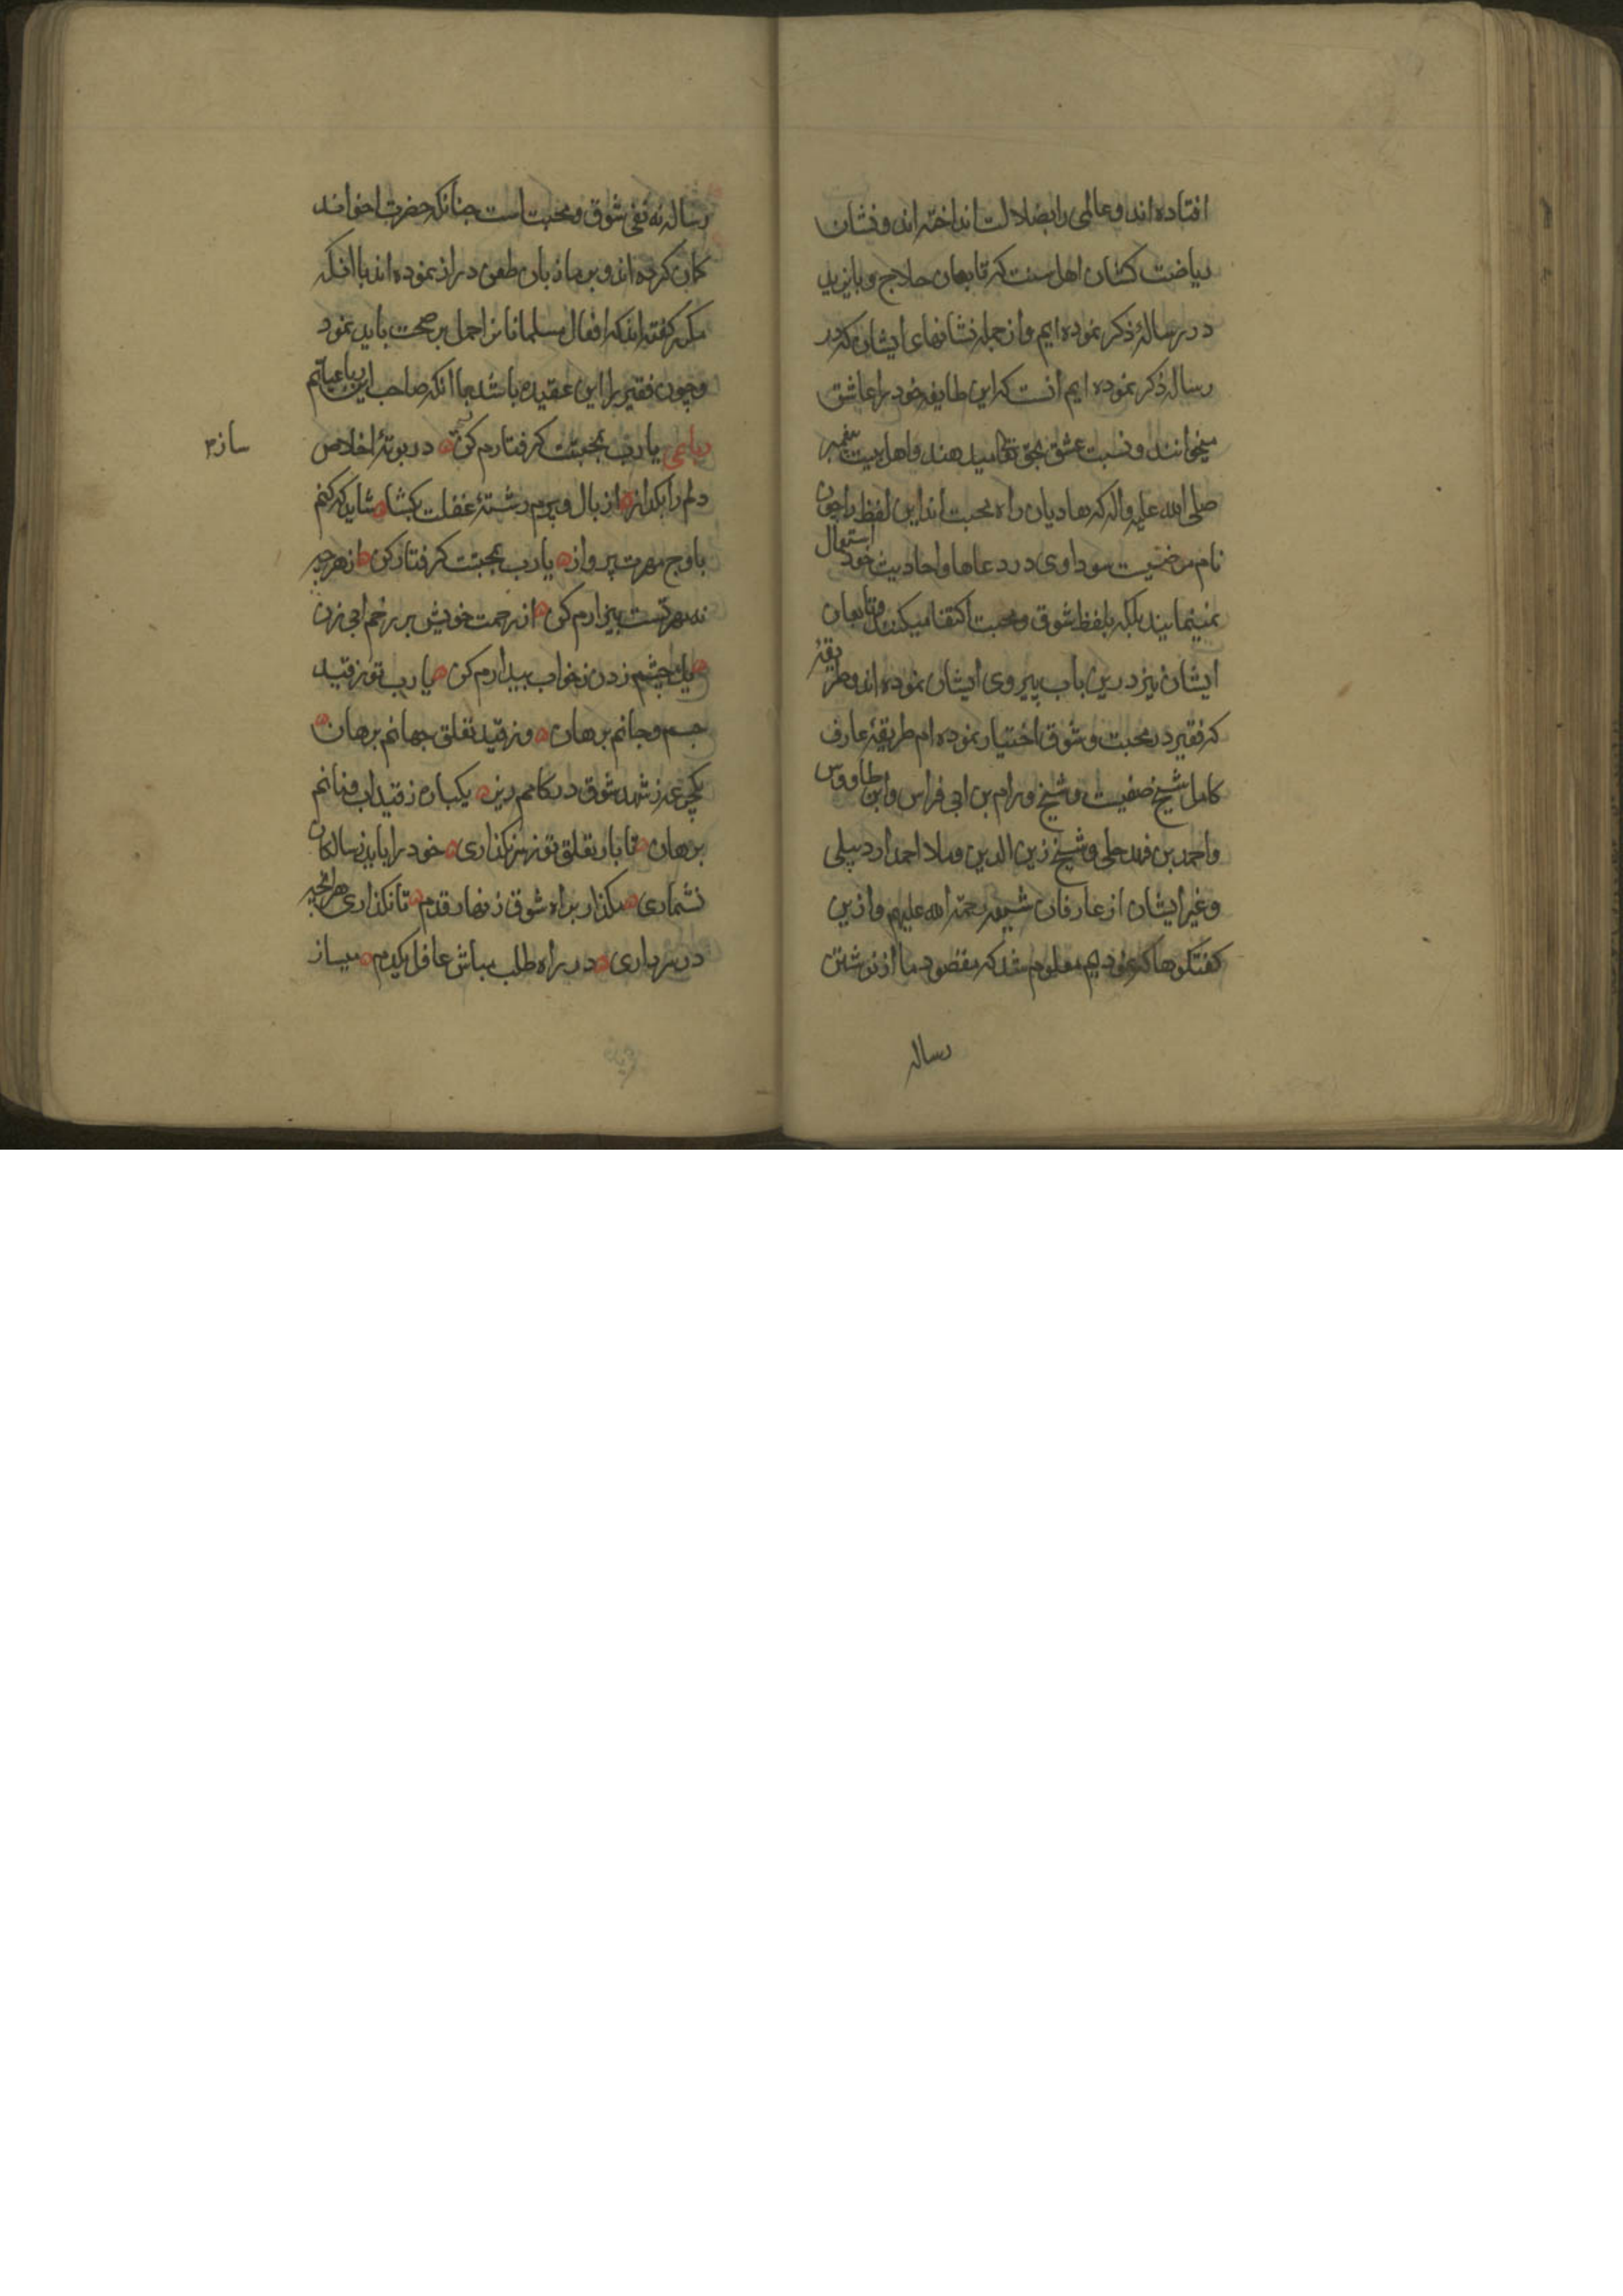 افتاده اند و عالمی را بضلالت انداخته اند و نشان
ریاضت کشان اهل سنت که تابعان حلاج و بایزید
در رساله ذکر نموده ایم و از جمله نشانهای ایشان که در
رساله ذکر نموده ایم آنست که این طایفه خود را عاشق
میخوانند و نسبت عشق بحق تعالی میدهند و اهل بیت پیغمبر
صلی الله علیه و اله که هادیان راه محبت اند این لفظ را چون
نام مرضیست سوداوی در دعاها و احادیث خود استعمال
نمینمایند بلکه بلفظ شوق و محبت اکتفا میکنند و تابعان
ایشان نیز درین باب پیروی ایشان نموده اند و طریقهٔ
که فقیر در محبت و شوق اختیار نموده ام طریقهٔ عارف
کامل شیخ صفیست و شیخ ورام بن ابی فراس و ابن طاووس
و احمد بن فهد حلی و شیخ زین الدین و ملا احمد اردبیلی
و غیر ایشان از عارفان شیعه رحمة الله علیهم و ازین
کفتکوها که نمودیم معلوم شد که مقصود ما از نوشتن
رساله
رساله نه نفی شوق و محبت است چنانکه حضرت اخواند
کمان کرده اند و بر ما زبان طعن دراز نموده اند با انکه
مکرر کفته اند که افعال مسلمانانرا حمل بر صحت باید نمود
و چون فقیر را این عقیده باشد با انکه صاحب این رباعیاتم
رباعی یا رب بمحبتت کرفتارم کن در بوتهٔ اخلاص
ساز
دلم را بکداز از بال و پرم رشتهٔ غفلت بکشا شاید که کنم
باوج مهرت پرواز یا رب بمحبتت کرفتار کن از هر چه
نه مهر تست بیزارم کن از رحمت خویش بر رخم ابی زن
یک چشم زدن ز خواب بیدارم کن یا رب تو ز قید
جسم و جانم برهان وز قید تعلق جهانم برهان
یکجرعه ز شهد شوق در کامم ریز یکباره ز قید اب و نانم
برهان تا بار تعلق تو ز سر نکذاری خود را باید ز سالکان
نشماری مکذار براه شوق زنهار قدم تا نکذاری هر انچه
در سر داری در راه طلب مباش غافل یکدم میساز